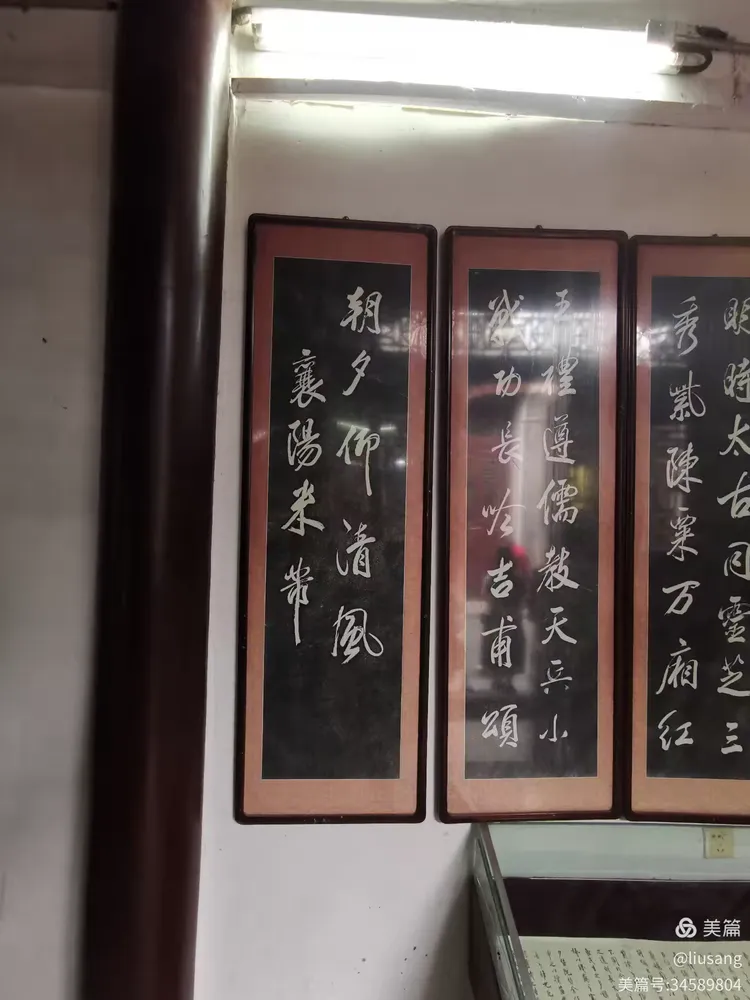 明時太古同靈芝三
秀紫陳粟万廂紅
五禮遵儒教天兵小
戰功長吟吉甫頌
朝夕仰清風
襄陽米芾
美篇
@liusang
美篇号:34589804